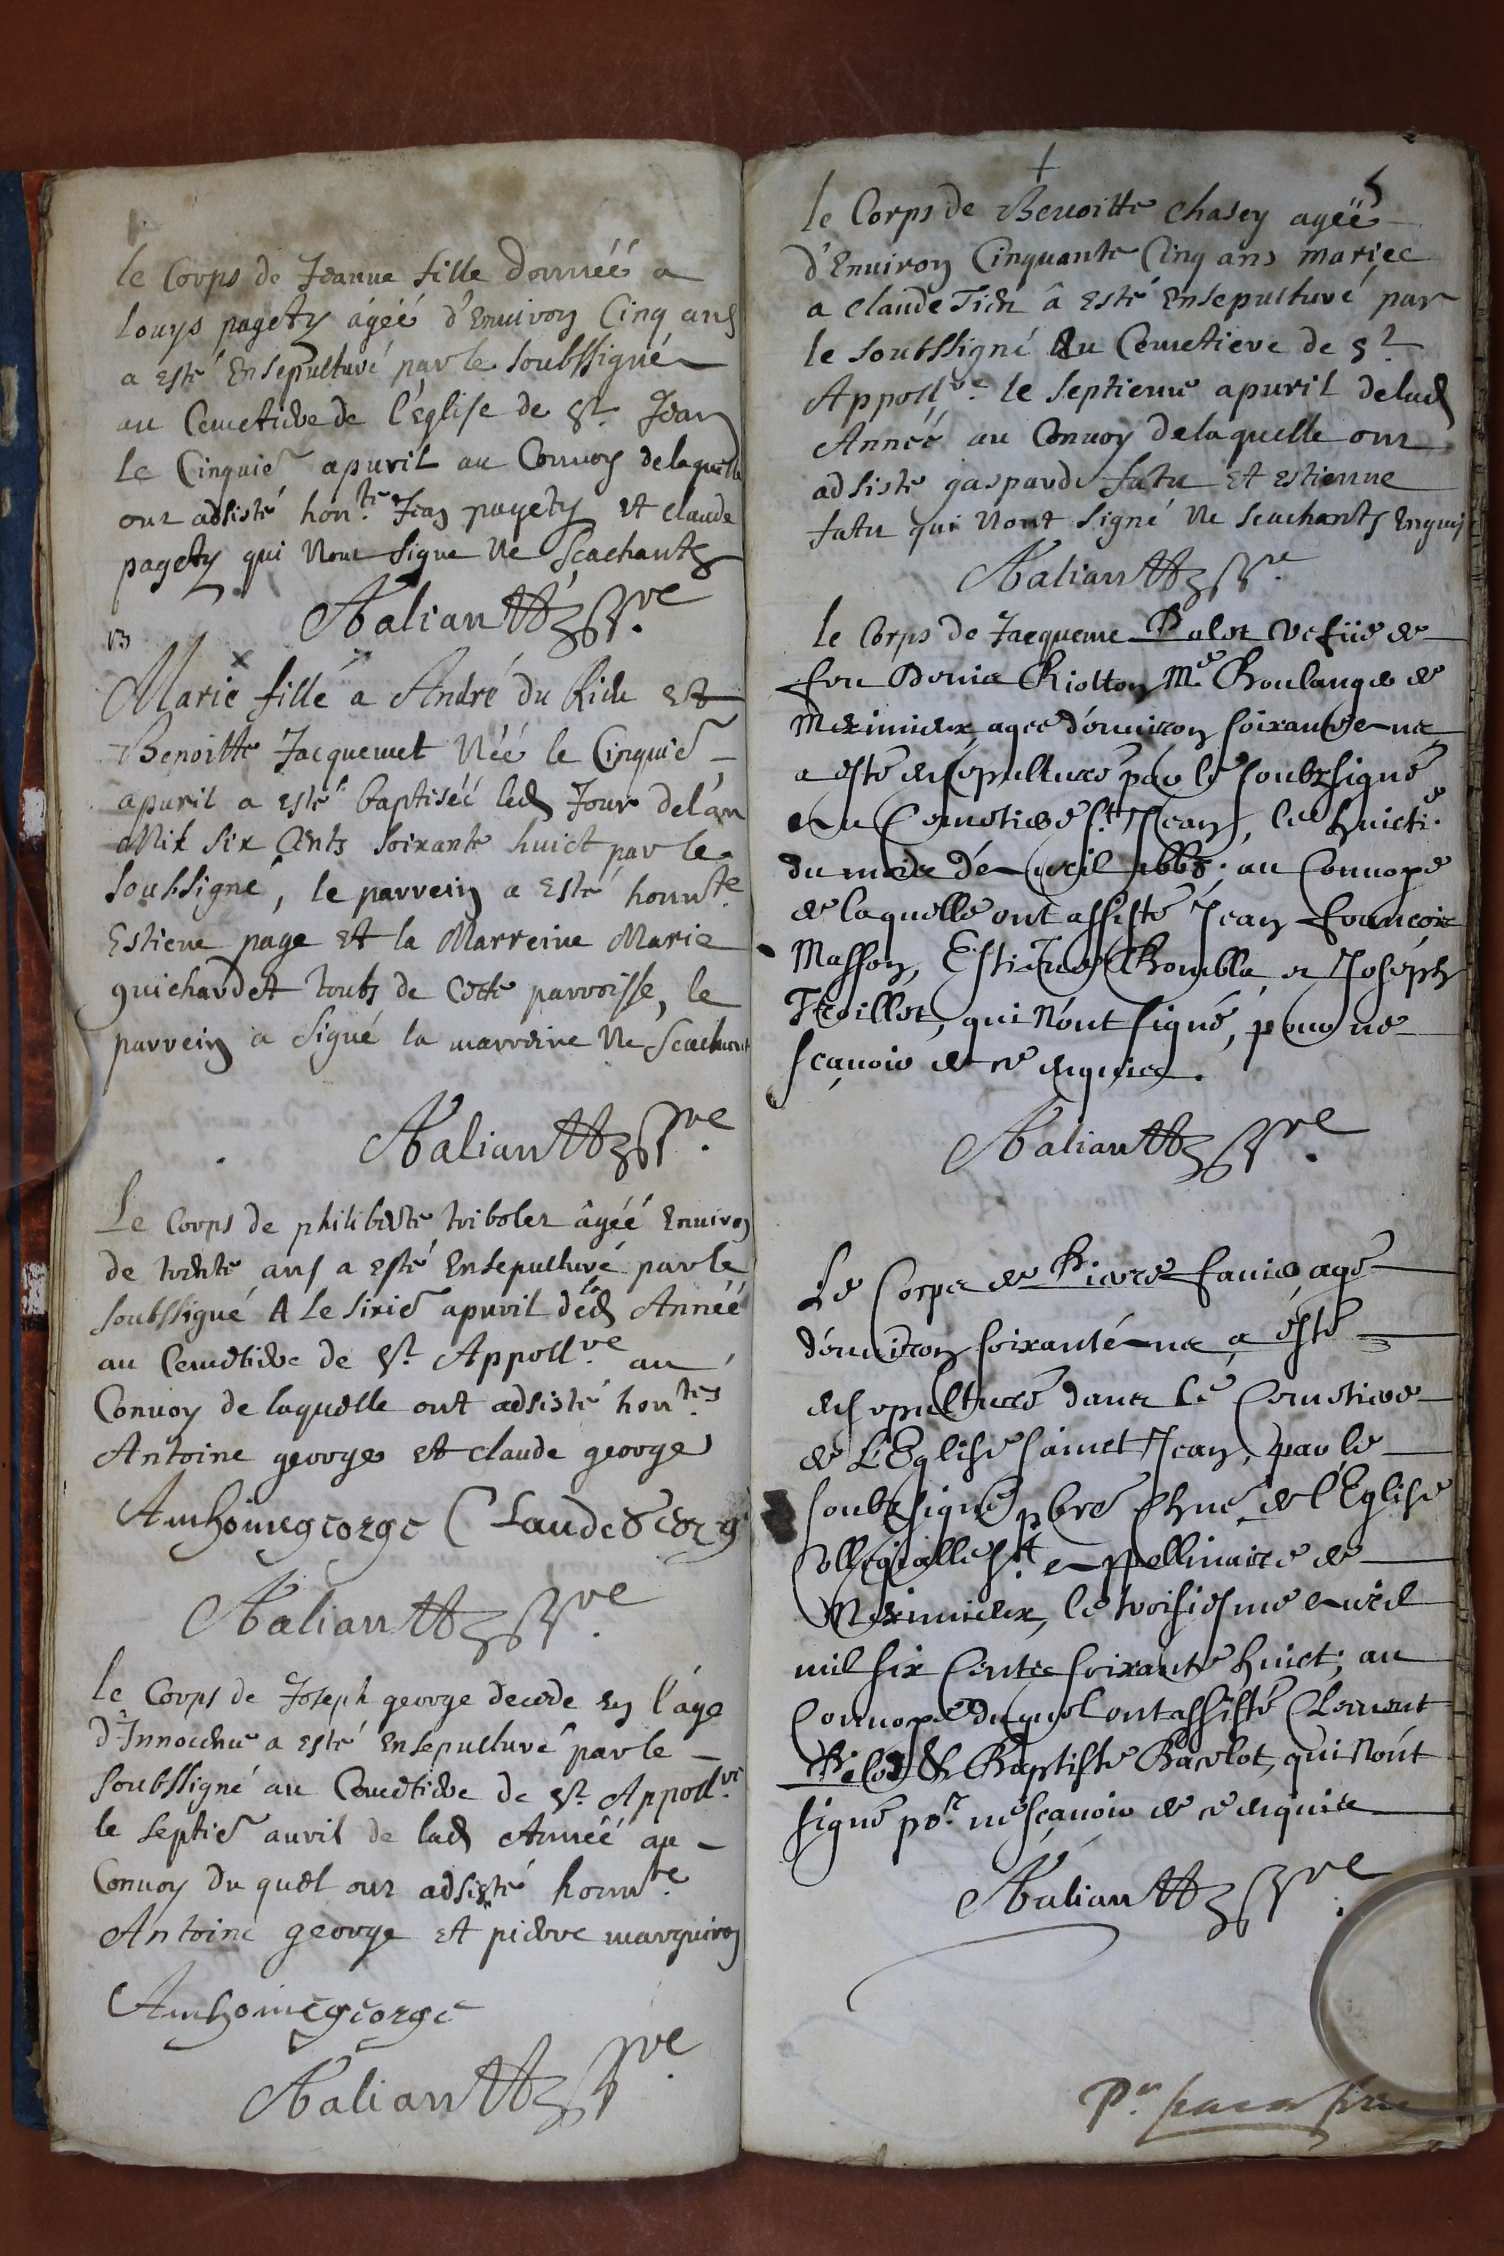 le Corps de Jeanne fille donnéé a
Louys pagety ágéé d'Enuiron Cinq ans
a esté Ensepulturé par le soubssigné
au Cemetiere de l'Eglise de St. Jean
Le Cinquie apuril au Conuoy de laquelle
ont adsisté honte. Jean pagety et claude
pagety qui Nont signe Ne Scachants
Baliantt
Marie fille a André du Rieu et
Benoitte Jacquemet Néé le Cinquie
apuril a esté baptiséé led Jour de l'an
Mil six Cents soixante huict par le
soubsigné, le parrein a Esté honnte.
Estiene page et la Marreine Marie
guichardet touts de Cette parroisse, le
parrein a signé la marreine Ne Scachant
Baliantt
Le Corps de philiberte triboler âgéé Enuiron
de trente ans a esté Ensepulturé par le
soubssigné le sixie apuril de lad Annéé
au Cemetiere de St. Appollre. au
Conuoy de laquelle ont adsisté hontes.
Antoine george et Claude george
Anthoine george Claude george
Baliantt
le Corps de Joseph george decede en l'áge
d'Innocence a esté Ensepulturé par le
soubssigné au Cemetiere de St. Appollre.
le septie auril de lad Annéé au
Conuoy du quel ont adsisté honnte.
Antoine george et pierre marguiron
Anthoine george
Baliantt
le Corps de Benoitte Chasey agéé
d'Enuiron Cinquante Cinq ans mariee
a claude à Esté Ensepulturé par
le soubssigné au Cemetiere de St.
Appollre. le septieme apuril de lad
Annéé au Conuoy de laquelle ont
adsisté gasparde fatu et estienne
fatu qui Nont signé Ne scachants Enquis
Baliantt
le Corps de Jacqueme Palot vefüe de
feu Denis Riotton Me. Boulanger de
Meximieux agee d'enuiron soixante ans
a esté ensepulturé par le soubzsigné
au Cemetiere St. Jean, le huictie.
du mois d'Auril 1668; au Conuoye
de laquelle ont assisté Jean François
Masson, Estienne Bomblla et Joseph
Troillet, qui N'ont signé, pour ne
sçauoir de ce enquis.
Baliantt
Le Corps de Pierre fauier agé
d'enuiron soixanté ans a esté
ensepulturé dans le Cemetiere
de L'Eglise sainct Jean, par le
soubzsigné pbre Chne de l'Eglise
Collegialle St. Appollinaire de
Meximieux, le troisiesme Auril
mil six Cents soixante huict; au
Conuoye duquel ont assisté Clement
Belod & Baptiste Barlot, qui N'ont
signé pour ne sçauoir de ce enquis
Baliantt